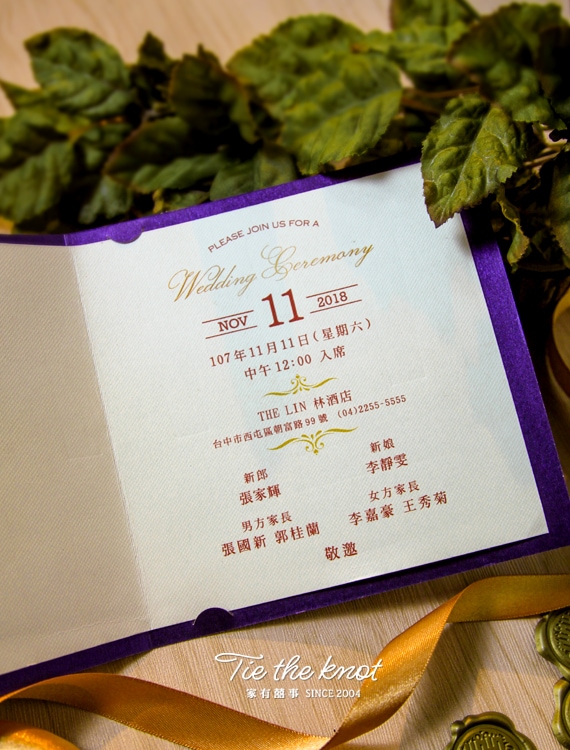 PLEASE JOIN US FOR A
Wedding Ceremony
NOV 11 2018
107年11月11日(星期六)
中午12:00 入席
THE LIN 林酒店
台中市西屯區朝富路99號 (04)2255-5555
新郎 新娘
張家輝 李靜雯
男方家長 女方家長
張國新 郭桂蘭 李嘉豪 王秀菊
敬邀
Tie the knot
家有囍事 SINCE 2004